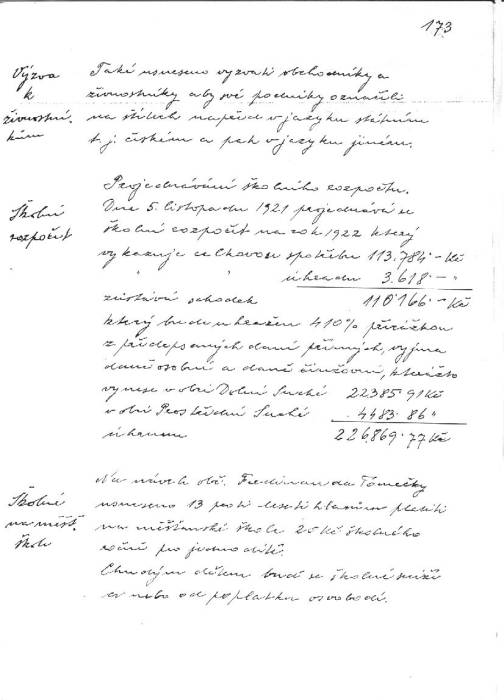 173
Výzva
k
živnostní.
kům
Také usneseno vyzvati obchodníky a
živnostníky aby své podniky označili
na štítech napřed v jazyku státním
t. j. českém a pak v jazyku jiném.
Školní
rozpočet
Projednávání školního rozpočtu.
Dne 5. listopadu 1921 projednává se
školní rozpočet na rok 1922 který
vykazuje celkovou spotřebu 113.784·– Kč
" " úhradu 3.618·– "
zůstává schodek 110166·– Kč
který bude uhrazen 410% přirážkou
z předepsaných daní přímých, vyjma
daně osobní a daně činžovní, kterážto
vynese v obci Dolní Suché 22385·91 Kč
v obci Prostřední Suché 4483·86 "
úhrnem 226.869·77 Kč
Školné
na měšť.
škole
Na návrh obč. Ferdinanda Tomečky
usneseno 13 proti šesti hlasům platiti
na měšťanské škole 25 Kč školného
ročně pro jedno dítě.
Chudým dětem buď se školné sníží
a nebo od poplatku osvobodí.